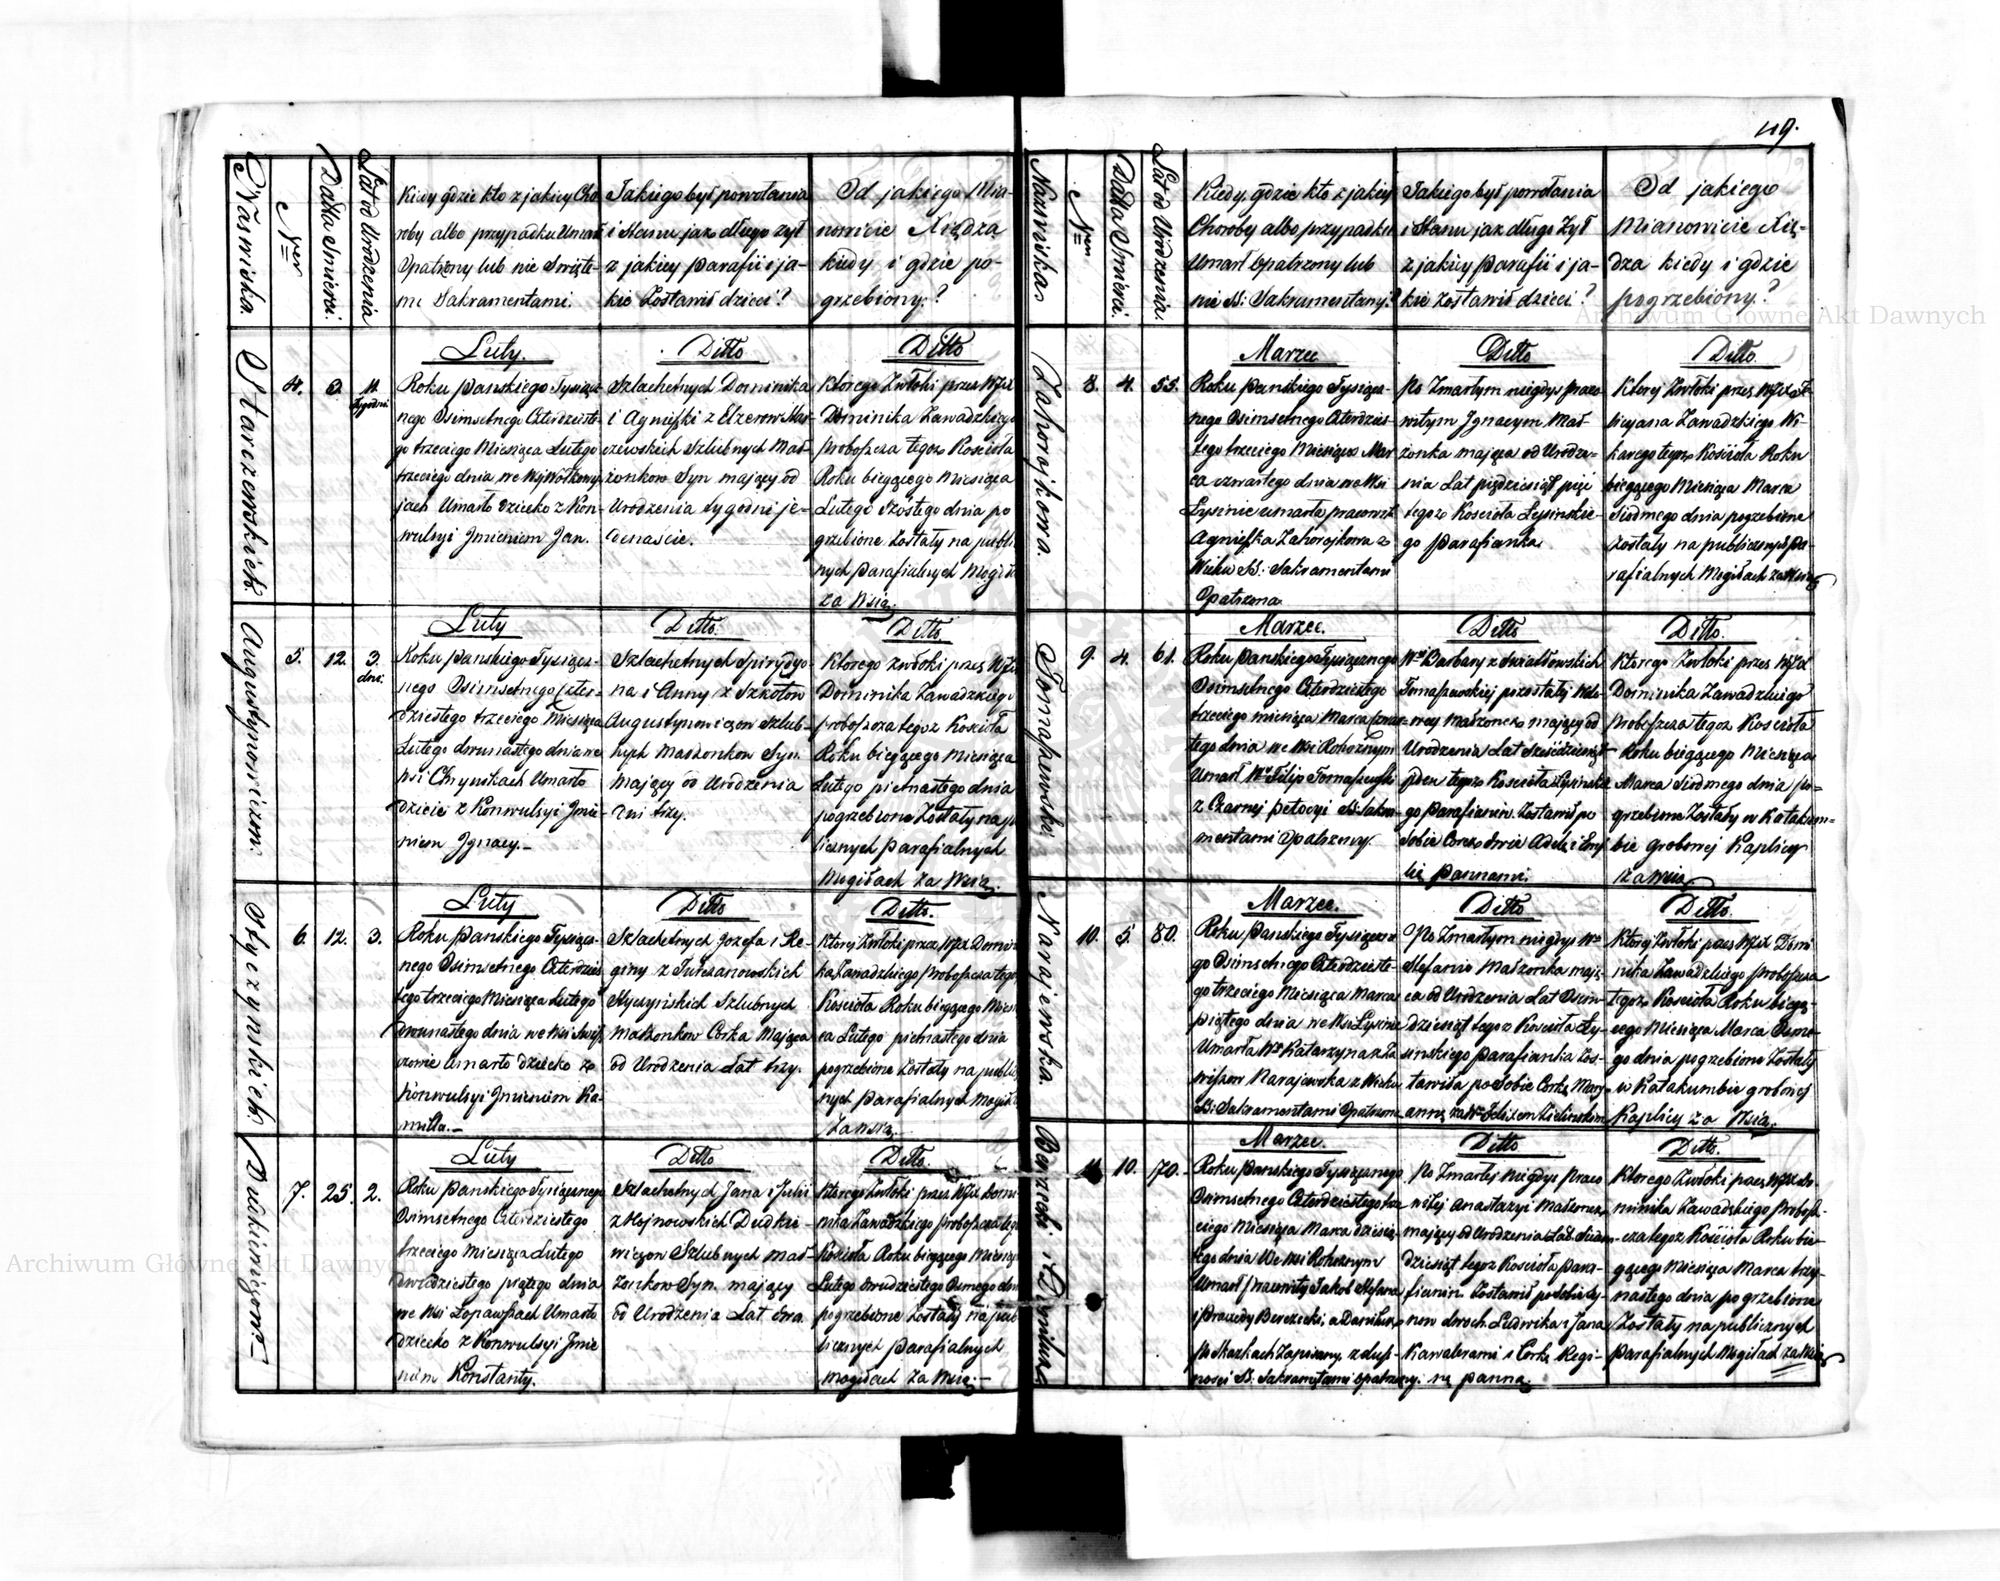 119.
Nazwiska.
Nrer
Datta Smierci.
Lat od Urodzenia
Kiedy gdzie kto z jakiey Cho
roby albo przypadku Umarł
Opatrzony lub nie Swięte-
mi Sakramentami.
Jakiego był powołania
i Stanu jak długo żył
z jakiey parafii i ja-
kie Zostawił dzieci?
Od jakiego Mia-
nowicie Xiędza
kiedy i gdzie po-
grzebiony?
Starczewskich.
4.
3.
11.
tygodni
Luty.
Roku Panskiego Tysiącz
nego Osimsetnego Czterdzieste
go trzeciego Miesiąca Lutego
trzeciego dnia we Wsi
jach Umarło Dziecko z Kon-
wulsyi Jmieniem Jan.
Ditto
Szlachetnych Dominika
i Agnieszki z
czewskich Szlubnych Mał-
żonkow Syn mający od
Urodzenia tygodni je-
denaście.
Ditto
Ktorego Zwłoki przez WJX
Dominika Zawadzkiego
proboszcza tegoż Kościoła
Roku bieżącego Miesiąca
Lutego Szóstego dnia po
grzebione Zostały na publi
nych parafialnych Mogiła
za Wsią.
Augustynowiczow.
5.
12.
3.
dni.
Luty
Roku Panskiego Tysiącz-
nego Osimsetnego Czter-
dziestego trzeciego Miesiąca
Lutego dwunastego dnia we
Wsi Umarło
Dziecie z Konwulsyi Jmie-
niem Jgnacy.-
Ditto.
Szlachetnych Spirydyo-
na i Anny z Szkołow
Augustynowiczow Szlub-
nych Małżonkow Syn
mający od Urodzenia
dni trzy.
Ditto.
Ktorego zwłoki przez WJX
Dominika Zawadzkiego
proboszcza tegoż Kościoła
Roku bieżącego Miesiąca
Lutego pietnastego dnia
pogrzebione Zostały na pu
licznych parafialnych
Mogiłach Za Wsią.
6.
12.
3.
Luty
Roku Panskiego Tysiącz-
nego Osimsetnego Czterdzies
tego trzeciego Miesiąca Lutego
dwunastego dnia we Wsi
Umarło dziecko z
Konwulsyi Jmieniem Ka-
milla.-
Ditto
Szlachetnych Jozefa i Re-
giny z
Szlubnych
małżonkow Corka Mająca
od Urodzenia Lat trzy.
Ditto.
Ktorej Zwłoki przez WJX Domin
ka Zawadzkiego proboszcza tego
Kościoła Roku bieżącego Miesi
ca Lutego pietnastego dnia
pogrzebione Zostały na public
nych parafialnych Mogił
Za wsią.
7.
25.
2.
Luty
Roku Panskiego Tysiącznego
Osimsetnego Czterdziestego
trzeciego Miesiąca Lutego
dwudziestego piątego dnia
we Wsi Umarło
dziecko z Konwulsyi Jmie
niem Konstanty.
Ditto
Szlachetnych Jana i Julii
z Hojnowskich Dudkie-
wiczow Szlubnych mał-
żonkow Syn mający
od Urodzenia Lat dwa.
Ditto.
Ktorego Zwłoki przez WJX Domi
nika Zawadzkiego proboszcza teg
Kościoła Roku bieżącego Miesiąc
Lutego dwudziestego Osmego dni
pogrzebione Zostały na pub
licznych parafialnych
mogiłach Za Wsią.-
Nazwiska
Nrer
Datta Smierci.
Lat od Urodzenia.
Kiedy, gdzie kto z jakiey
Choroby albo przypadku
Umarł Opatrzony lub
nie SS: Sakramentami?
Jakiego był powołania
i Stanu jak długo Żył
z jakiey Parafii i ja-
kie zostawił dzieci?
Od jakiego
Mianowicie Xię-
dza kiedy i gdzie
pogrzebiony?
Zahorojkowa.
8.
4.
55.
Marzec
Roku Panskiego Tysiącz-
nego Osimsetnego Czterdzies-
tego trzeciego Miesiąca Mar
ca czwartego dnia we Wsi
Łysinie umarła pracowit
Agnieszka Zahorojkowa z
Wieku SS: Sakramentami
Opatrzona
Ditto
Po Zmarłym niegdys praco
witym Jgnacym Mał-
żonka mająca od Urodze-
nia Lat pięćdziesiąt pięć
tegoż Kościoła Łysinskie-
go parafianka.
Ditto.
Ktorej Zwłoki przez WJX
Zawadzkiego Wi-
karego tegoż Kościoła Roku
bieżącego Miesiąca Marca
Siodmego dnia pogrzebione
zostały na publicznych Pa-
rafialnych Mogiłach za Wsią
9.
4.
61.
Marzec.
Roku Panskiego Tysiącznego
Osimsetnego Czterdziestego
trzeciego miesiąca Marca czwar-
tego dnia we Wsi
Umarł Wy Filip Tomaszewski
z Czarnej SS: Sakra-
mentami Opatrzony.
Ditto
Wy Barbary z
Tomaszewskiej pozostałej
Małżonek mający od
Urodzenia Lat Sześćdziesiąt
jeden tegoż Kościoła Łysinskie
go parafianin. Zostawił po
Sobie Corek dwie Adelę i Emi
lię pannami.
Ditto.
Ktorego Zwłoki przez WJX
Dominika Zawadzkiego
proboszcza tegoż Kościoła
Roku bieżącego Miesiąca
Marca Siodmego dnia po-
grzebione Zostały w Katakum=
bie grobowej Kaplicy
za Wsią
Narajewska.
10.
5.
80.
Marzec.
Roku Panskiego Tysiączne
go Osimsetnego Czterdzieste-
go trzeciego Miesiąca Marca
piątego dnia we Wsi Łysinie
Umarła Wa Katarzyna z
Narajewska z Wieku
SS: Sakramentami Opatrzona
Ditto
Po Zmarłym niegdys Wm
Stefanie Małżonka mają-
ca od Urodzenia Lat Osim
dziesiąt tegoż Kościoła Ły-
sinskiego parafianka Zos-
tawiła po Sobie Corkę Mary-
annę za Wm Zielinskim
Ditto.
Ktorej Zwłoki przez WJX Domi
nika Zawadzkiego proboszcza
tegoż Kościoła Roku bieżą-
cego Miesiąca Marca Osme-
go dnia pogrzebione Zostały
w Katakumbie grobowej
Kaplicy Za Wsią.
11.
10.
70.
Marzec.
Roku Panskiego Tysiącznego
Osimsetnego Czterdziestego trze
ciego Miesiąca Marca dziesią
tego dnia We Wsi
Umarł pracowity Jakob
Berezecki, a
Skazkach Zapisany,
SS: Sakramentami opatrzony.
Ditto
Po Zmarłej niegdys Praco
witej Anastazyi Małżonek
mający od Urodzenia Lat Siedm
dziesiąt tegoż Kościoła Para-
fianin. Zostawił po Sobie Sy-
now dwoch Ludwika i Jana
Kawalerami i Corkę Regi-
nę panną.
Ditto.
Ktorego Zwłoki przez WJX Do-
minika Zawadzkiego probosz-
cza tegoż Kościoła Roku bie-
żącego Miesiąca Marca trzy-
nastego dnia pogrzebione
Zostały na publicznych
parafialnych Mogiłach za Wsią
Archiwum Główne Akt Dawnych
Archiwum Główne Akt Dawnych